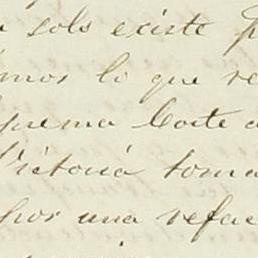 sols existe
mos lo que re
prema Corte
Victoria toma
por una refac